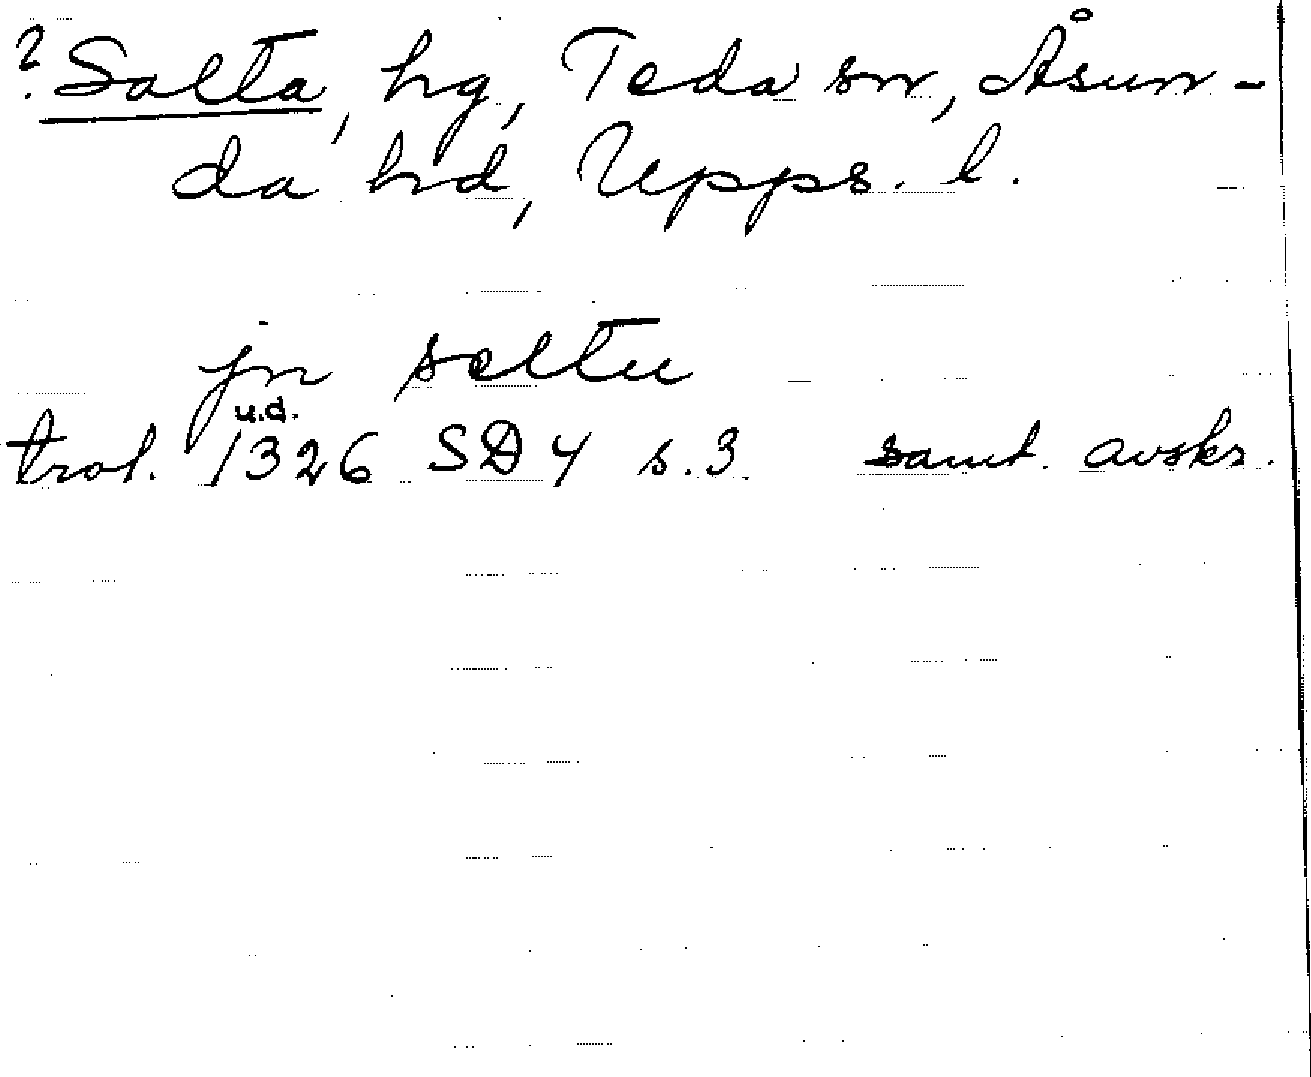 ? Salta, hg, Teda sn, Åsun-
da hd, Upps. l.
jn saltu
u.d.
trol. 1326 SD 4 s. 3 samt. avskr.